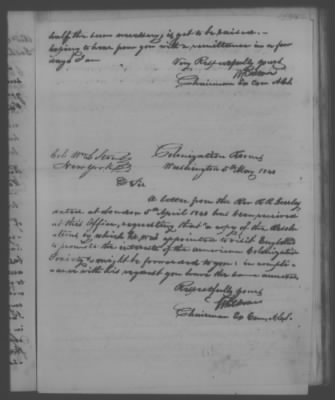 half the sum necessary is yet to be raised.
hoping to hear from you with a remittance in a few
days I am
Very Respectfully yours
Chairman Ex Com A.C.S.
Col. Wm L Stone
New York
Colonization Rooms
Washington 5th May 1841
D Sir
A letter from the Rev R R Gurley
dated at London 5th April 1841 has been received
at this Office, requesting that a copy of the Resol
utions by which he was appointed to visit England
to promote the interests of the American Colonization
Society might be forwarded to you: in compli
ance with his request you have the same annexed
Respectfully yours
Chairman Ex Com. A.C.S.